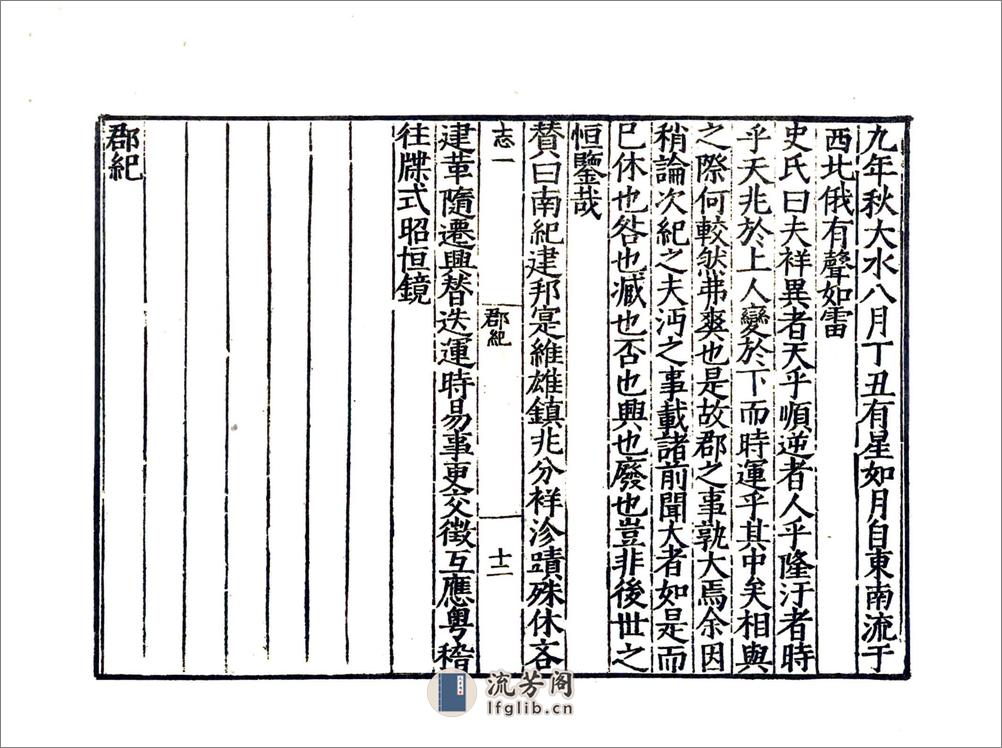 九年秋大水八月丁丑有星如月自東南流于
西北俄有聲如雷
史氏曰夫祥異者天乎順逆者人乎隆汙者時
乎天兆於上人變於下而時運乎其中矣相與
之際何較然弗爽也是故郡之事孰大焉余因
稍論次紀之夫沔之事載諸前聞大者如是而
已休也咎也臧也否也興也廢也豈非後世之
恒鑒哉
賛曰南紀建邦寔維雄鎮兆分祥沴蹟殊休吝
志一
郡紀
十二
建革隨遷興替迭運時易事更交徵互應粵稽
往牒式昭恒鏡
郡紀
流芳阁
lfglib.cn